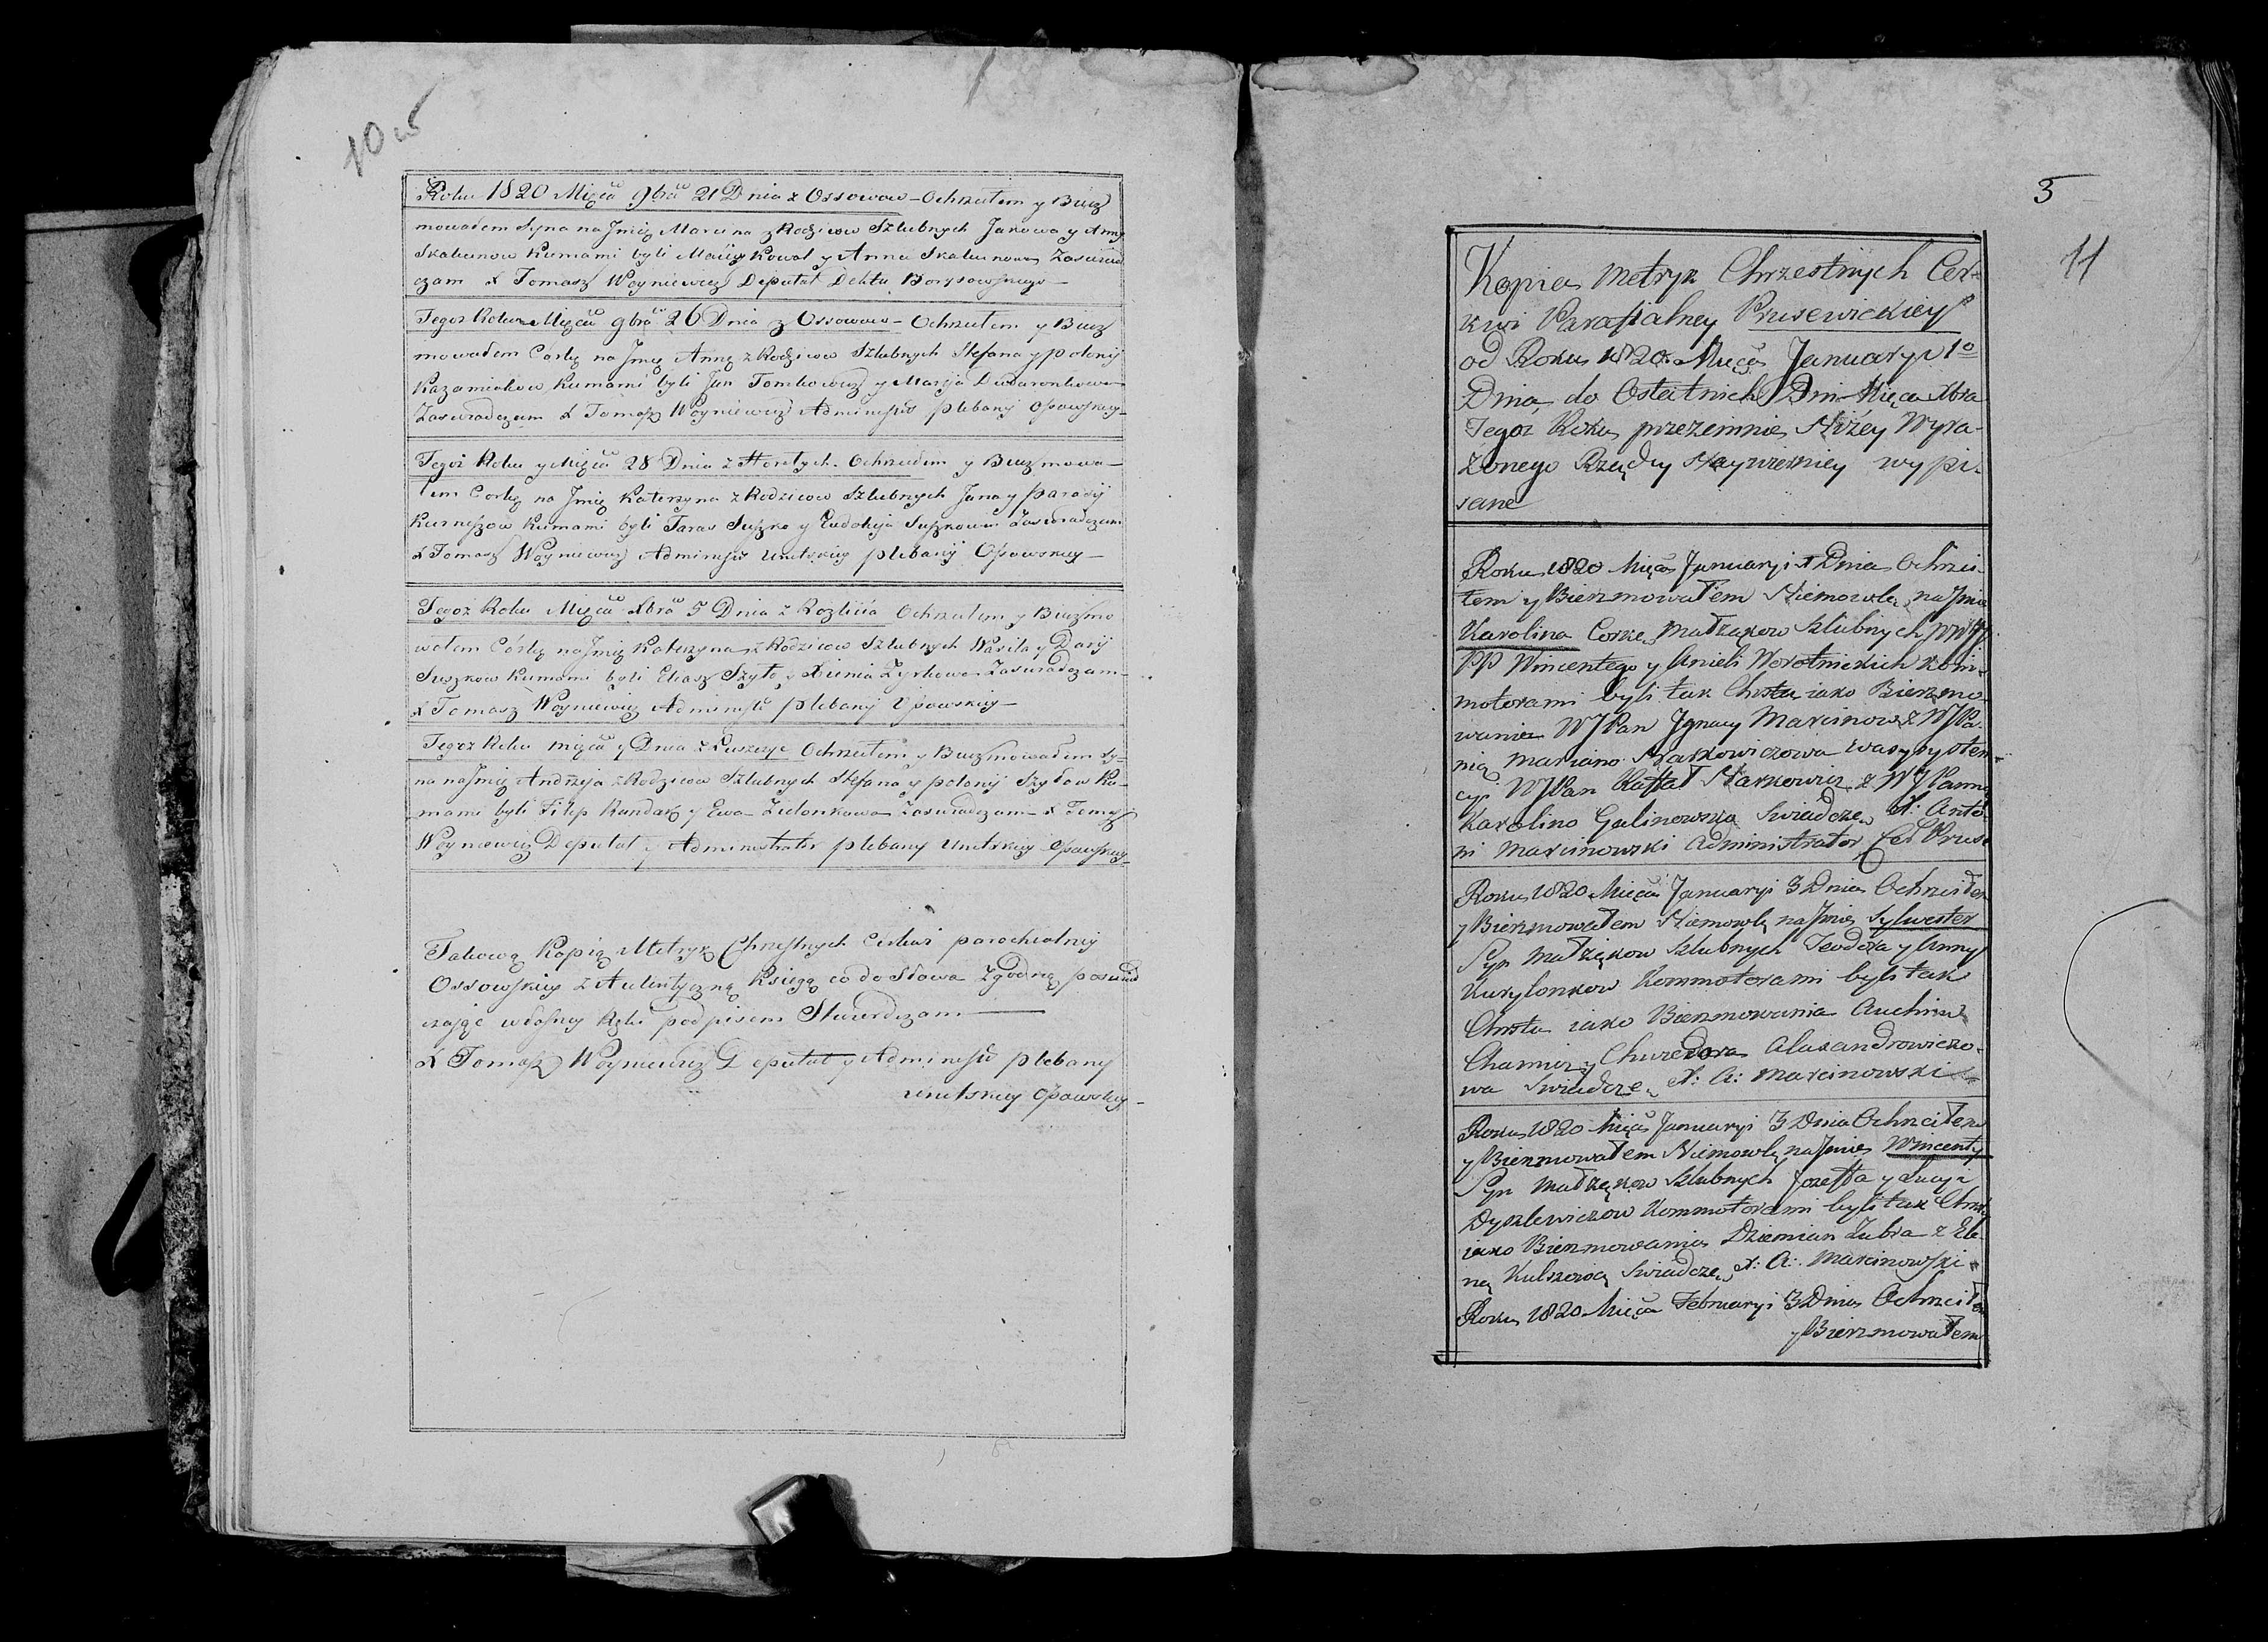 10 об
Roku 1820 Mięca 9bra 21 Dnia z Ossowow – Ochrzcilem y Bierz
mowałem Syna na Jmię Marcina z Rodzicow Szlubnych Jakowa y Anny
Skakunow Kumami byli Maciey Kowal y Anna Skakunowa Zaswiad
czam X Tomasz Woyniewicz Deputat Dektu Borysowskiego –
Tegoż Roku Mięca 9bra 26 Dnia z Ossowow – Ochrzcilem y Bierz
mowałem Córkę na Jmię Annę z Rodzicow Szlubnych Stefana y Polonij
Kazamiakow Kumami byli Jan Tomkowicz y Marija
Zaswiadczam X Tomasz Woyniewicz Administr plebanij
Tegoż Roku y Mięca 28 Dnia z Ochrzcilem y Bierzmowa–
łem Corkę na Jmię Katerzyna z Rodzicow Szlubnych Jana y Parasij
Kurneszow Kumami byli Taras Suszko y Eudokija Suszkowa Zaswiadczam
X Tomasz Woyniewicz Administr Unitskiey plebanij
Tegoż Roku Mięca Xbra 5 Dnia z Ochrzcilem y Bierzmo
wałem Córkę na Jmię Katerzyna z Rodzicow Szlubnych Wasila y Darij
Suszkow Kumami byli Eliasz Szyło y Xienia Zaswiadczam –
X Tomasz Woyniewicz Administr plebanij
Tegoż Roku mięca y Dnia z Ochrzcilem y Bierzmowałem Sy–
na na Jmię Andrzeja z Rodzicow Szlubnych Stefana y Polonij Szyłow Ku–
mami byli Filip Rundak y Ewa Zielonkowa Zaswiadczam X Tomasz
Woyniewicz Deputat y Administrator plebany Unitskiey
Takową Kopię Metryk Chrzestnych Cerkwi parochialney
Ossowskiey z Autentyczną Księgą co do Słowa Zgodną poswiad
czając własney Ręki podpisem Stwierdzam
X Tomasz Woyniewicz Deputat y Administr plebany
unitskiey
5
11
Kopia Metryk Chrzestnych Cer–
kwi Parafialney Prusewickiey
od Roku 1820 Mięca Januaryi 1o
Dnia do Ostatnich Dni Mięca Xbra
Tegoż Roku przezemnie Niżey Wyra–
żonego Rządcy Nayzwierniey wypi–
sane
Roku 1820 Mięca Januaryi 1 Dnia Ochrzci–
łem y Bierzmowałem Niemowlę na Jmie
Karolina Corkę Małżąkow Szlubnych WWJJ
PP Wincentego y Anieli Worotnickich Kom–
motorami byli tak Chrztu iako Bierzmo–
wania WJPan Jgnacy Marcinow: z WJPa–
nią Mariano Narkowiczowa w assysten–
cyi WJPan Rafał Narkowicz z WJPanną
Karolino Galinowną Swiadczę X: Anto–
ni Marcinowski Administrator Cer Prus:
Roku 1820 Mięca Januaryi 3 Dnia Ochrzciłem
y Bierzmowałem Niemowlę na Jmie Sylwester
Syn Małżąkow Szlubnych Teodora y Anny
Kurylonkow Kommotorami byli tak
Chrztu iako Bierzmowania Auchim
Chamicz y Chwedora Alaxandrowiczo–
wa Swiadczę X: A: Marcinowski
Roku 1820 Mięca Januaryi 3 Dnia Ochrzciłem
y Bierzmowałem Niemowlę na Jmie Wincenty
Syn Małżąkow Szlubnych Jozefta y Łucyi
Dyszlewiczow Kommotorami byli tak Chrztu
iako Bierzmowania Dziemian Zubra z Ele–
ną Kulszową Swiadczę X: A: Marcinowski
Roku 1820 Mięca Februaryi 3 Dnia Ochrzciłem
y Bierzmowałem